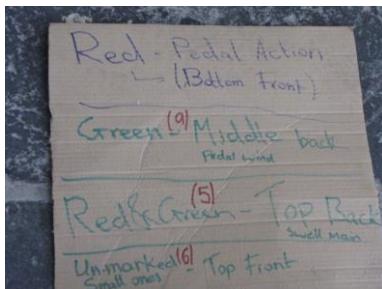 Red - Pedal Action
(Bottom Front)
Green - (9) Middle back
Pedal wind
Red & Green - (5) Top Back
Swell Main
Unmarked (6) - Top Front
Small ones